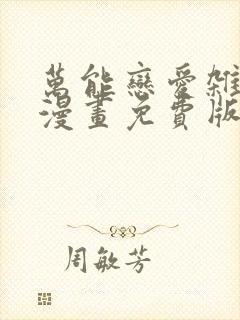 萬能戀愛雜
漫畫免費版
周敏芳